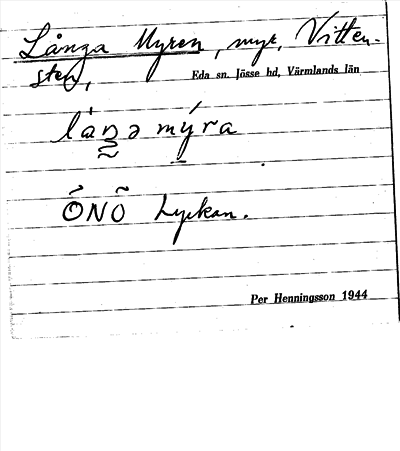 Långa Myren, myr, Vitten-
sten,
Eda sn. Jösse hd, Värmlands län
láŋə mýra
ÖNÖ Lyckan.
Per Henningsson 1944